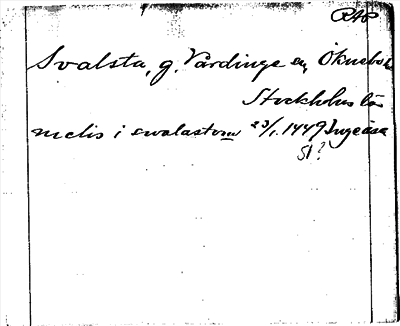 RAP
Svalsta, g. Vårdinge sn, Öknebo h
Stockholms län
melis i swalastom 23/1.1449 Ingeåsa
SI?